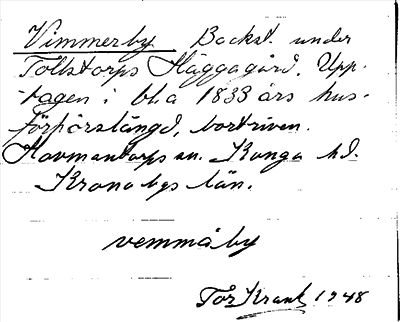 Vimmerby Backst. under
Tollstorps Häggagård. Upp-
tagen i bl.a 1833 års hus-
förhörslängd, bortriven.
Hovmantorps sn. Konga hd.
Kronobgs län.
vemmåby
Tor Krantz 1948